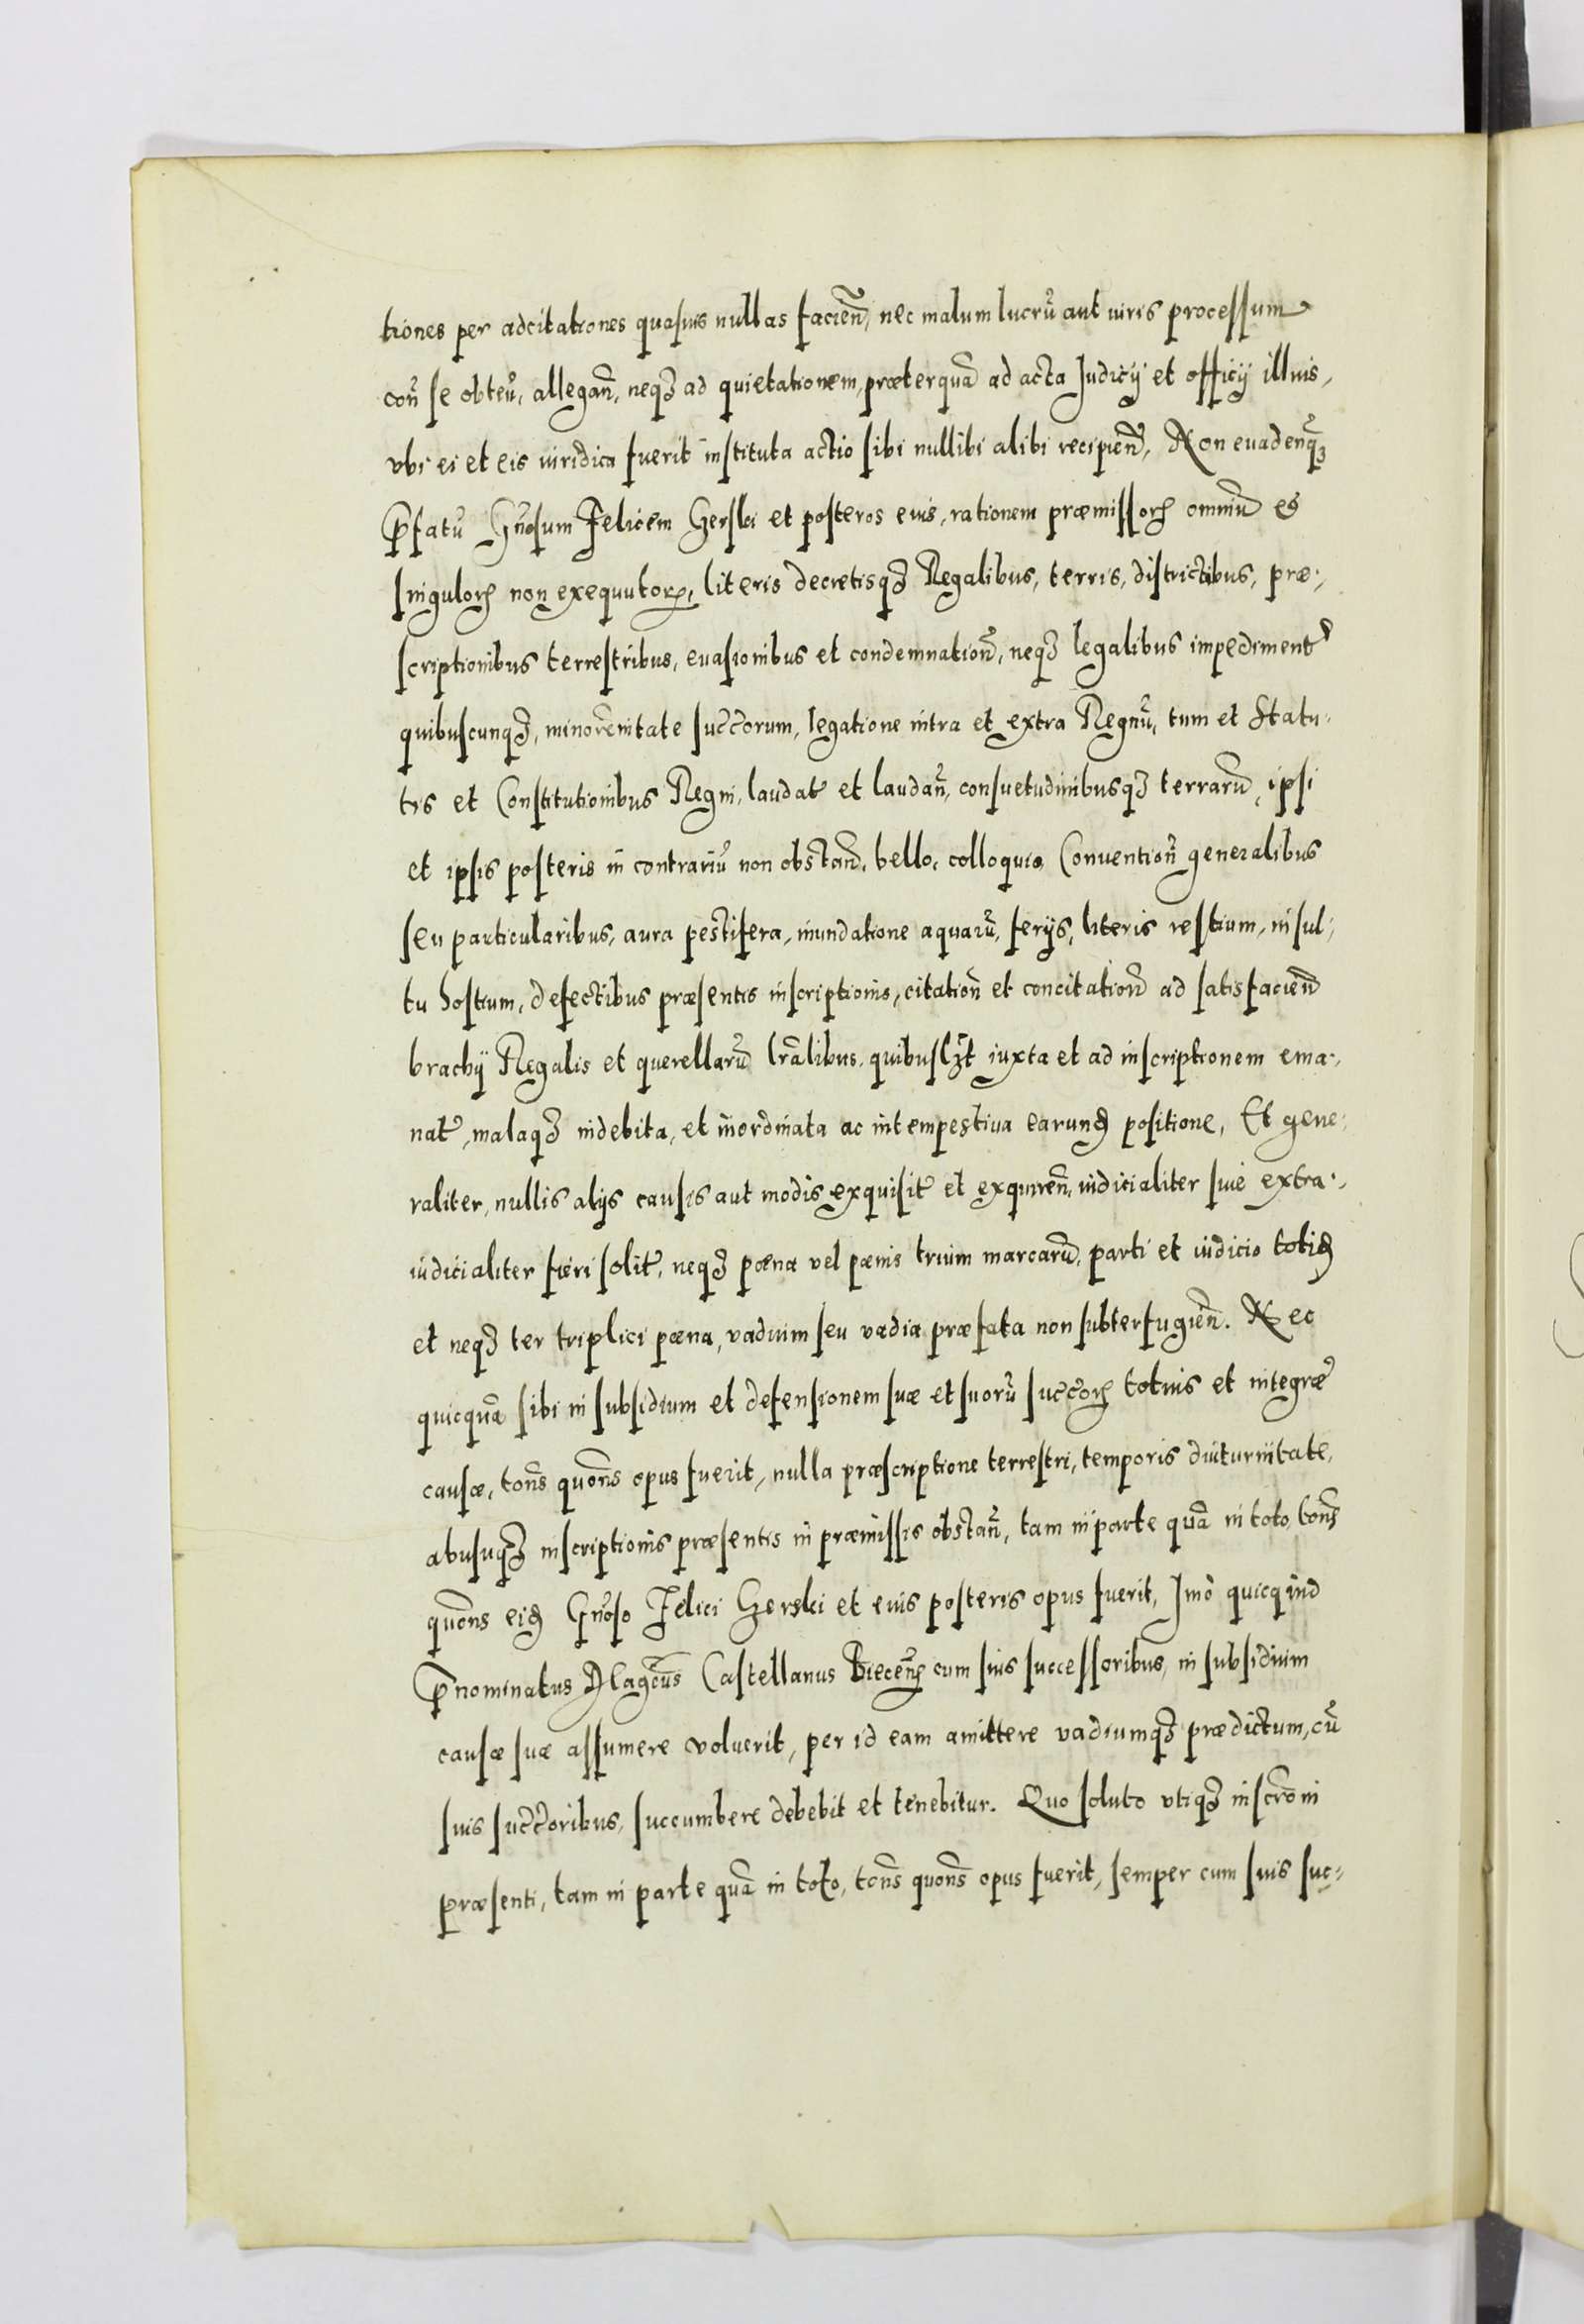 tiones per adcitationes quasuis nullas facień, nec malum lucrū aut iuris processum
coń se obteń, allegań, neqꝫ ad quietationem, præterquā ad acta Judicÿ et officÿ illius,
vbi ei et eis iuridica fuerit instituta actio sibi nullibi alibi recipień, Non euadenqꝫ
p̄fatū Gńosum Felicem Herski et posteros eius, rationem præmissoꝝ omniū et
singuloꝝ non exequutoꝝ, literis decretisqꝫ Regalibus, terris, districtibus, præ-
scriptionibus terrestribus, euasionibus et condemnatioń, neqꝫ legalibus impediment̃
quibuscunqꝫ, minorennitate succ̄orum, legatione intra et extra Regnū, tum et Statu-
tis et Constitutionibus Regni, laudat̃ et laudań, consuetudinibusqꝫ terrarū, ipsi
et ipsis posteris in contrariū non obstań, bello, colloquio, Conuentioń generalibus
seu particularibus, aura pestifera, inundatione aquarū, ferÿs, literis restium, insul-
tu hostium, defectibus præsentis inscriptionis, citatioń et concitatioń ad satisfacień
brachÿ Regalis et querellarū lr̄alibus, quibuslꝫt iuxta et ad inscriptionem ema-
nat̃, malaqꝫ indebita, et inordinata ac intempestiua earunđ positione, Et gene-
raliter, nullis alÿs causis aut modis exquisit̃ et exquireń, iudicialiter siue extra-
iudicialiter fieri solit̃, neqꝫ pœna vel pœnis trium marcarū, parti et iudicio totiđ
et neqꝫ ter triplici pœna, vadium seu vadia præfata non subterfugień. Nec
quicquā sibi in subsidium et defensionem suæ et suorū succ̄oꝝ totius et integræ
causæ, tońs quońs opus fuerit, nulla præscriptione terrestri, temporis diuturnitate,
abusuqꝫ inscriptionis præsentis in præmissis obstań, tam in parte quā in toto, tońs
quońs eiđ Gńoso Felici Herski et eius posteris opus fuerit, Imò quicquid
p̄nominatus Magcūs Castellanus Biecenꝭ cum suis successoribus, in subsidium
causæ suæ assumere voluerit, per id eam amittere vadiumqꝫ prædictum, cū
suis succ̄oribus, succumbere debebit et tenebitur. Quo soluto vtiqꝫ inscr̄oni
præsenti, tam in parte quā in toto, tońs quońs opus fuerit, semper cum suis suc-